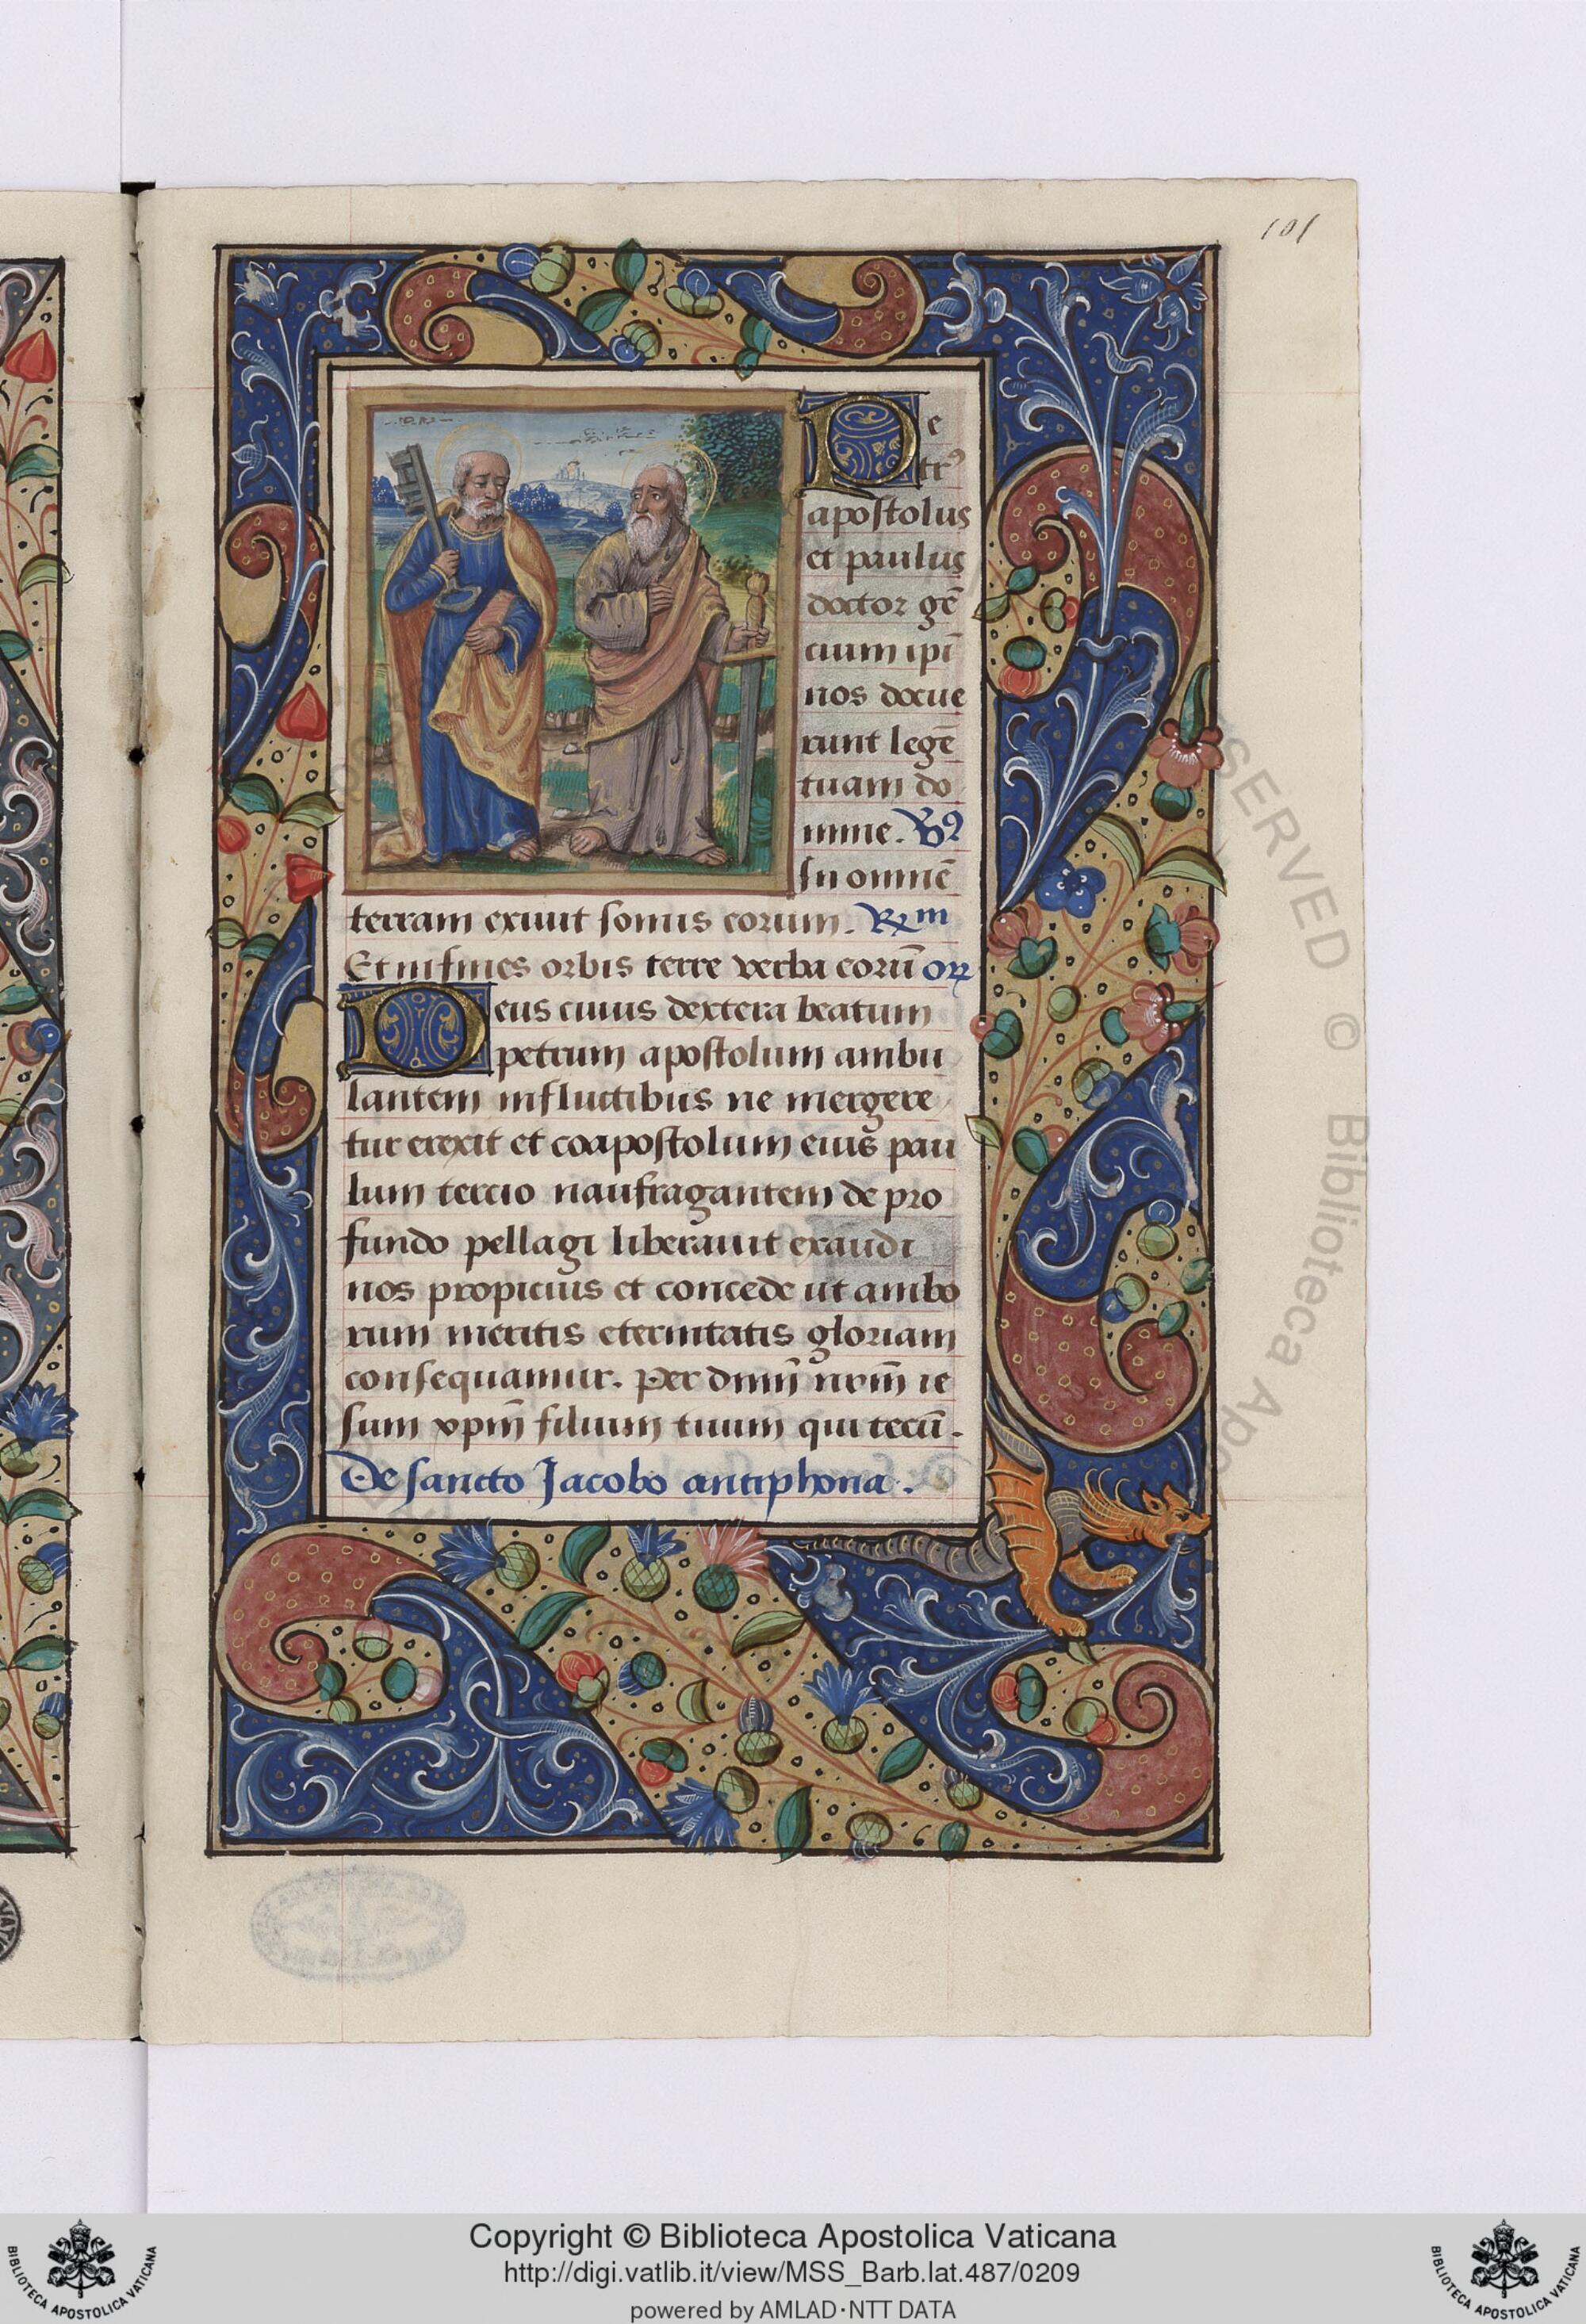 101
Pe
tr⁹
apostolus
et paulus
doctor gē
cium ip̄i
nos docue
runt legē
tuam do
mine. V̉
In omnē
terram exivit sonus eorum. R̉m
Et in fines orbis terre verba eorū or̄
Deus cuius dextera beatum
petrum apostolum ambu
lantem in fluctibus ne mergere
tur erexit et coapostolum eius pau
lum tercio naufragantem de pro
fundo pellagi liberavit exaudi
nos propicius et concede ut ambo
rum meritis eternitatis gloriam
consequamur. Per dnm̄ nrm̄ ie
sum xpm̄ filium tuum qui tecū.
De sancto Jacobo antiphona.
SERVED © Biblioteca Apos
Copyright © Biblioteca Apostolica Vaticana
http://digi.vatlib.it/view/MSS_Barb.lat.487/0209
powered by AMLAD·NTT DATA
BIBLIOTECA APOSTOLICA VATICANA
BIBLIOTECA APOSTOLICA VATICANA